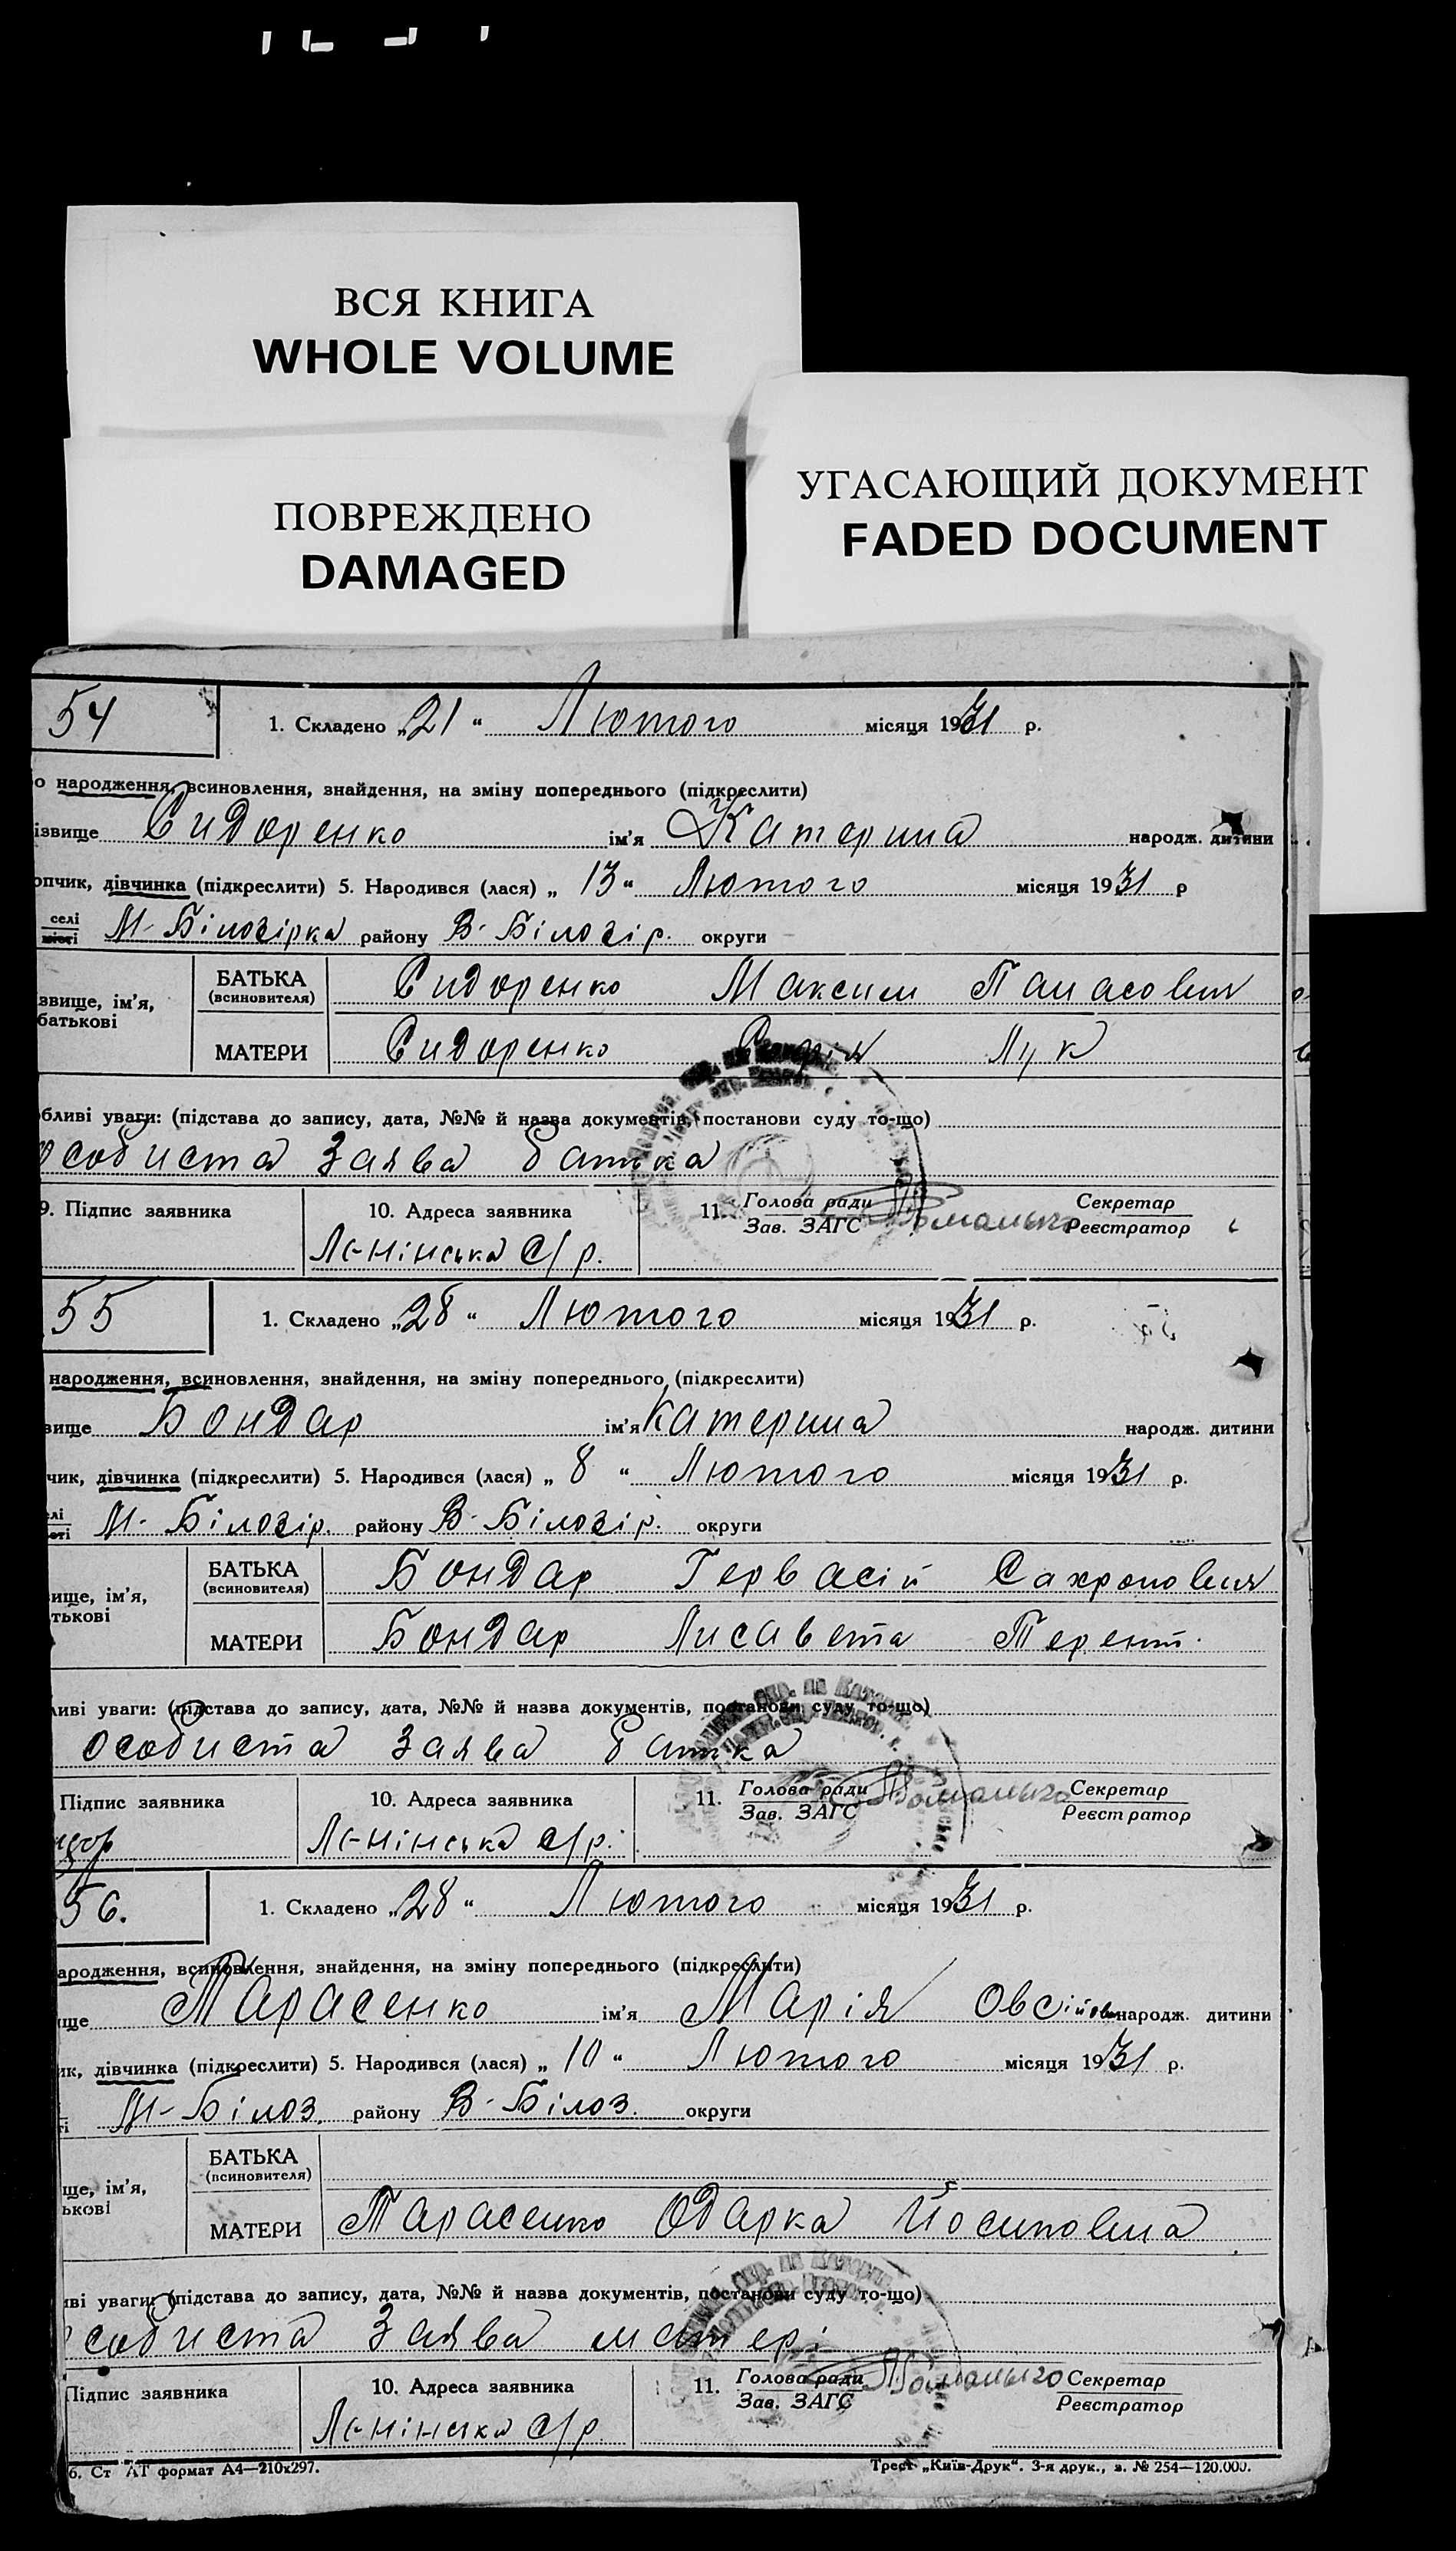 ВСЯ КНИГА
WHOLE VOLUME
ПОВРЕЖДЕНО
DAMAGED
УГАСАЮЩИЙ ДОКУМЕНТ
FADED DOCUMENT
54
1. Складено „21“ Лютого місяця 1931 р.
о народження, всиновлення, знайдення, на зміну попереднього (підкреслити)
ізвище Сидоренко ім'я Катерина народж. дитини
опчик, дівчинка (підкреслити) 5. Народився (лася) „13“ Лютого місяця 1931 р
селі
місті М-Білозірка району В-Білозір. округи
звище, ім'я,
батькові
БАТЬКА
(всиновителя) Сидоренко Максим Панасович
МАТЕРИ Сидоренко Лук
бливі уваги: (підстава до запису, дата, №№ й назва документів, постанови суду то-що)
особиста заява батька
9. Підпис заявника
10. Адреса заявника
Лєнінська С/р.
11. Голова ради
Зав. ЗАГС
Секретар
Реєстратор
55
1. Складено „28“ Лютого місяця 1931 р.
народження, всиновлення, знайдення, на зміну попереднього (підкреслити)
вище Бондар ім'я Катерина народж. дитини
чик, дівчинка (підкреслити) 5. Народився (лася) „8“ Лютого місяця 1931 р.
лі
оті М-Білозір. району В-Білозір. округи
ище, ім'я,
тькові
БАТЬКА
(всиновителя) Бондар Гервасій Сахронович
МАТЕРИ Бондар Лисавета Терент.
ливі уваги: (підстава до запису, дата, №№ й назва документів, постанови суду то-що)
особиста заява батька
Підпис заявника
10. Адреса заявника
Лєнінська с/р.
11. Голова ради
Зав. ЗАГС
Секретар
Реєстратор
56.
1. Складено „28“ Лютого місяця 1931 р.
ародження, всиновлення, знайдення, на зміну попереднього (підкреслити)
ище Тарасенко ім'я Марія Овсійов народж. дитини
ик, дівчинка (підкреслити) 5. Народився (лася) „10“ Лютого місяця 1931 р.
ті М-Білоз. району В-Білоз. округи
ще, ім'я,
ькові
БАТЬКА
(всиновителя)
МАТЕРИ Тарасенко Одарка Йосиповна
иві уваги: (підстава до запису, дата, №№ й назва документів, постанови суду то-що)
собиста заява матері
Підпис заявника
10. Адреса заявника
Лєнінська С/р
11. Голова ради
Зав. ЗАГС
Секретар
Реєстратор
б. Ст АТ формат А4—210х297.
Трест „Київ-Друк“. 3-я друк., з. № 254—120.000.